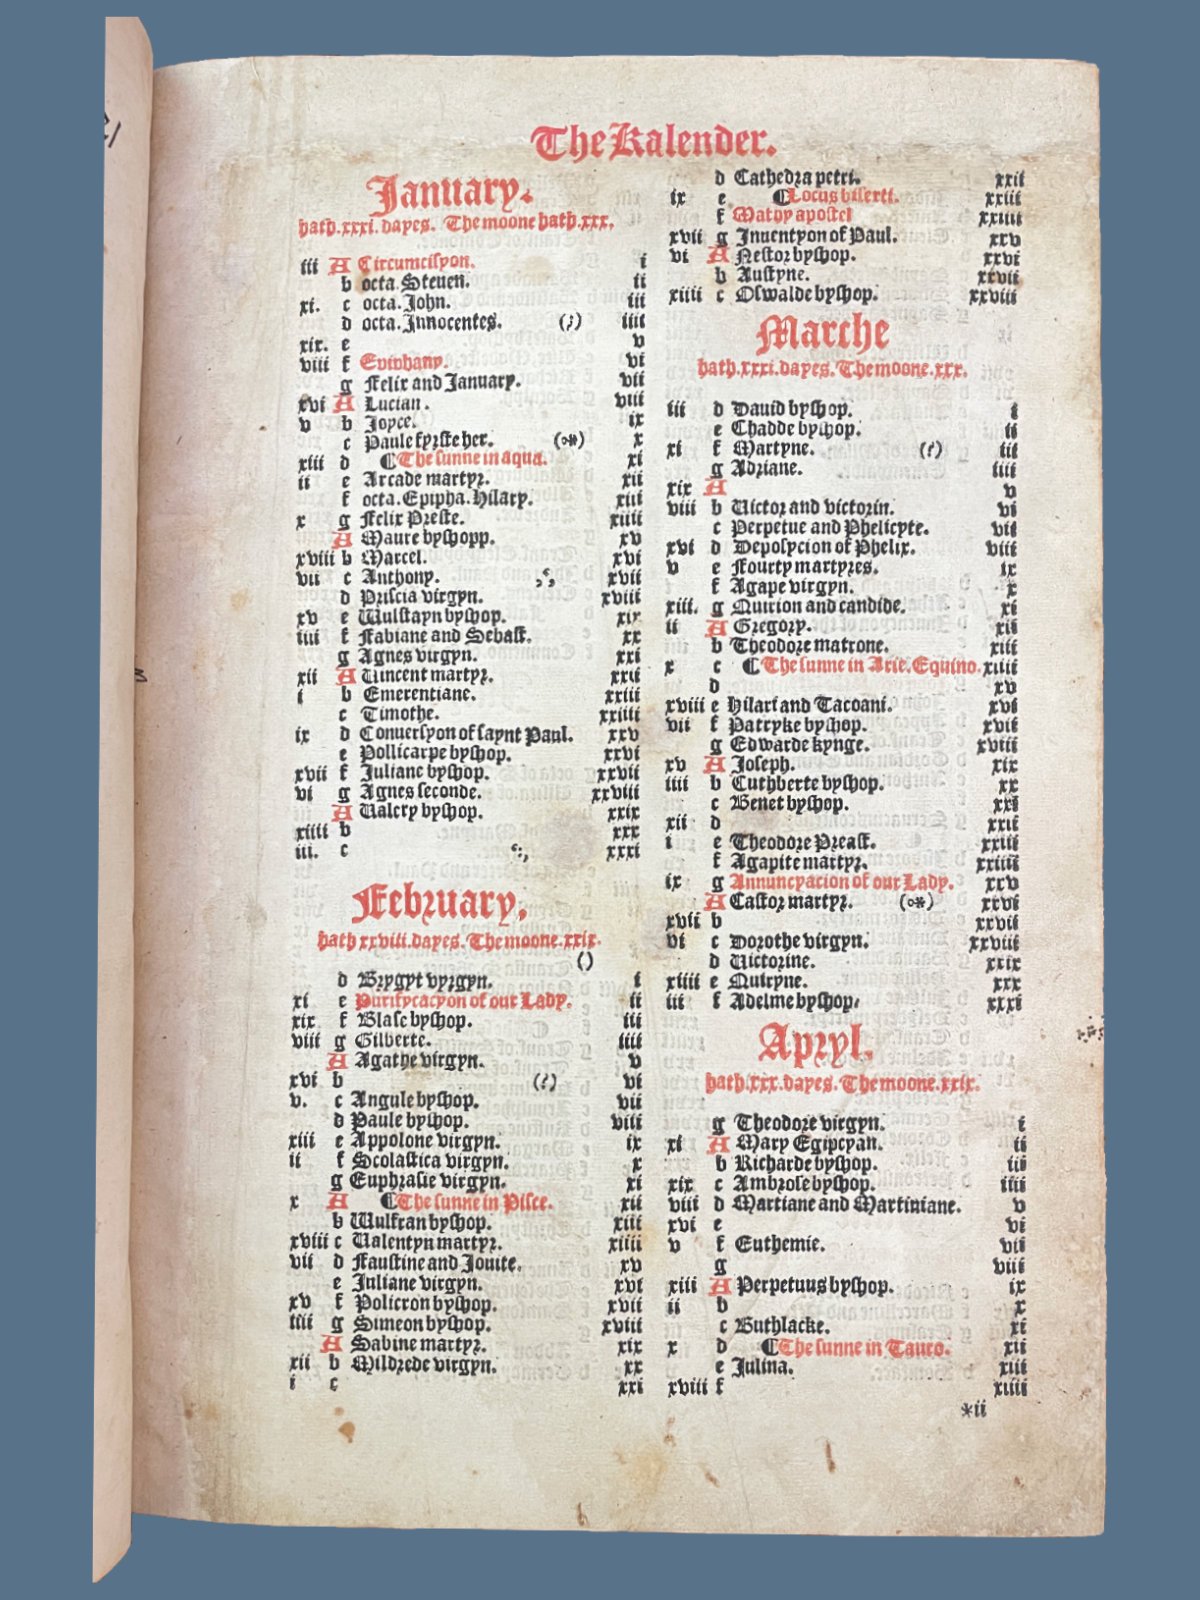 The Kalender.
January.
hath.xxxi.dayes. The moone hath.xxx.
iii A Circumcisyon. i
b octa.Steuen. ii
xi. c octa.John. iii
d octa.Innocentes. (;) iiii
xix. e v
viii f Epiphany. vi
g Felix and January. vii
xvi A Lucian. viii
v b Joyce. ix
c Paule fyrste her. (o*) x
xiii d ¶The sunne in aqua. xi
ii e Arcade martyr. xii
f octa.Epipha.Hilary. xiii
x g Felix Preste. xiiii
A Maure byshopp. xv
xviii b Marcel. xvi
vii c Anthony. xvii
d Priscia virgyn. xviii
xv e Wulstayn byshop. xix
iiii f Fabiane and Sebast. xx
g Agnes virgyn. xxi
xii A Uincent martyr. xxii
i b Emerentiane. xxiii
c Timothe. xxiiii
ix d Conuersyon of saynt Paul. xxv
e Pollicarpe byshop. xxvi
xvii f Juliane byshop. xxvii
vi g Agnes seconde. xxviii
A Ualery byshop. xxix
xiiii b xxx
iii. c xxxi
February.
hath xxviii.dayes. The moone.xxix.
()
d Brygyt vyrgyn. i
xi e Purifycacyon of our Lady. ii
xix f Blase byshop. iii
viii g Gilberte. iiii
A Agathe virgyn. v
xvi b (?) vi
v. c Angule byshop. vii
d Paule byshop. viii
xiii e Appolone virgyn. ix
ii f Scolastica virgyn. x
g Euphrasie virgyn. xi
x A ¶The sunne in Pisce. xii
b Wulfran byshop. xiii
xviii c Ualentyn martyr. xiiii
vii d Faustine and Jouite. xv
e Juliane virgyn. xvi
xv f Policron byshop. xvii
iiii g Simeon byshop. xviii
A Sabine martyr. xix
xii b Mildrede virgyn. xx
i c xxi
d Cathedra petri. xxii
ix e ¶Locus biserti. xxiii
f Mathy apostel xxiiii
xvii g Inuentyon of Paul. xxv
vi A Nestor byshop. xxvi
b Austyne. xxvii
xiiii c Oswalde byshop. xxviii
Marche
hath.xxxi.dayes. The moone.xxx.
iii d Dauid byshop. i
e Chadde byshop. ii
xi f Martyne. (?) iii
g Adriane. iiii
xix A v
viii b Uictor and victorin. vi
c Perpetue and Phelicyte. vii
xvi d Deposycion of Phelix. viii
v e Fourty martyres. ix
f Agape virgyn. x
xiii. g Quirion and candide. xi
ii A Gregory. xii
b Theodore matrone. xiii
x c ¶The sunne in Arie.Equino. xiiii
d xv
xviii e Hilari and Tacoani. xvi
vii f Patryke byshop. xvii
g Edwarde kynge. xviii
xv A Joseph. xix
iiii b Cuthberte byshop. xx
c Benet byshop. xxi
xii d xxii
i e Theodore Preast. xxiii
f Agapite martyr. xxiiii
ix g Annuncyacion of our Lady. xxv
A Castor martyr. (o*) xxvi
xvii b xxvii
vi c Dorothe virgyn. xxviii
d Uictorine. xxix
xiiii e Quiryne. xxx
iii f Adelme byshop. xxxi
Apryl.
hath.xxx.dayes. The moone.xxix.
g Theodore virgyn. i
xi A Mary Egipcyan. ii
b Richarde byshop. iii
xix c Ambrose byshop. iiii
viii d Martiane and Martiniane. v
xvi e vi
v f Euthemie. vii
g viii
xiii A Perpetuus byshop. ix
ii b x
c Guthlacke. xi
x d ¶The sunne in Tauro. xii
e Julina. xiii
xviii f xiiii
*ii